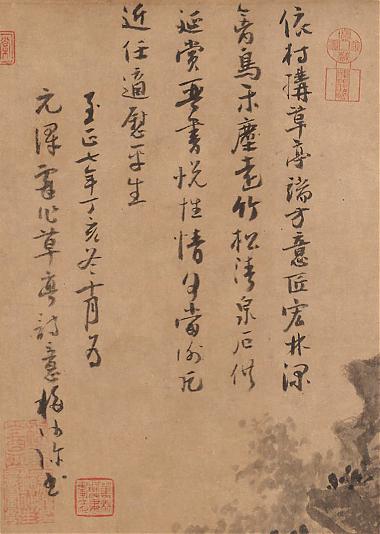 依村搆草亭端方意匠宏林深
禽鳥樂塵遠竹松清泉石供
延賞琴書悅性情何當謝凡
近任適慰平生
至正七年丁亥冬十月為
元澤戲作草亭詩意梅沙彌書